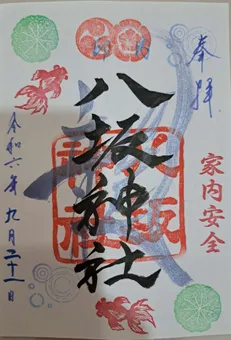 奉拝
八坂神社
家内安全
令和六年九月二十一日